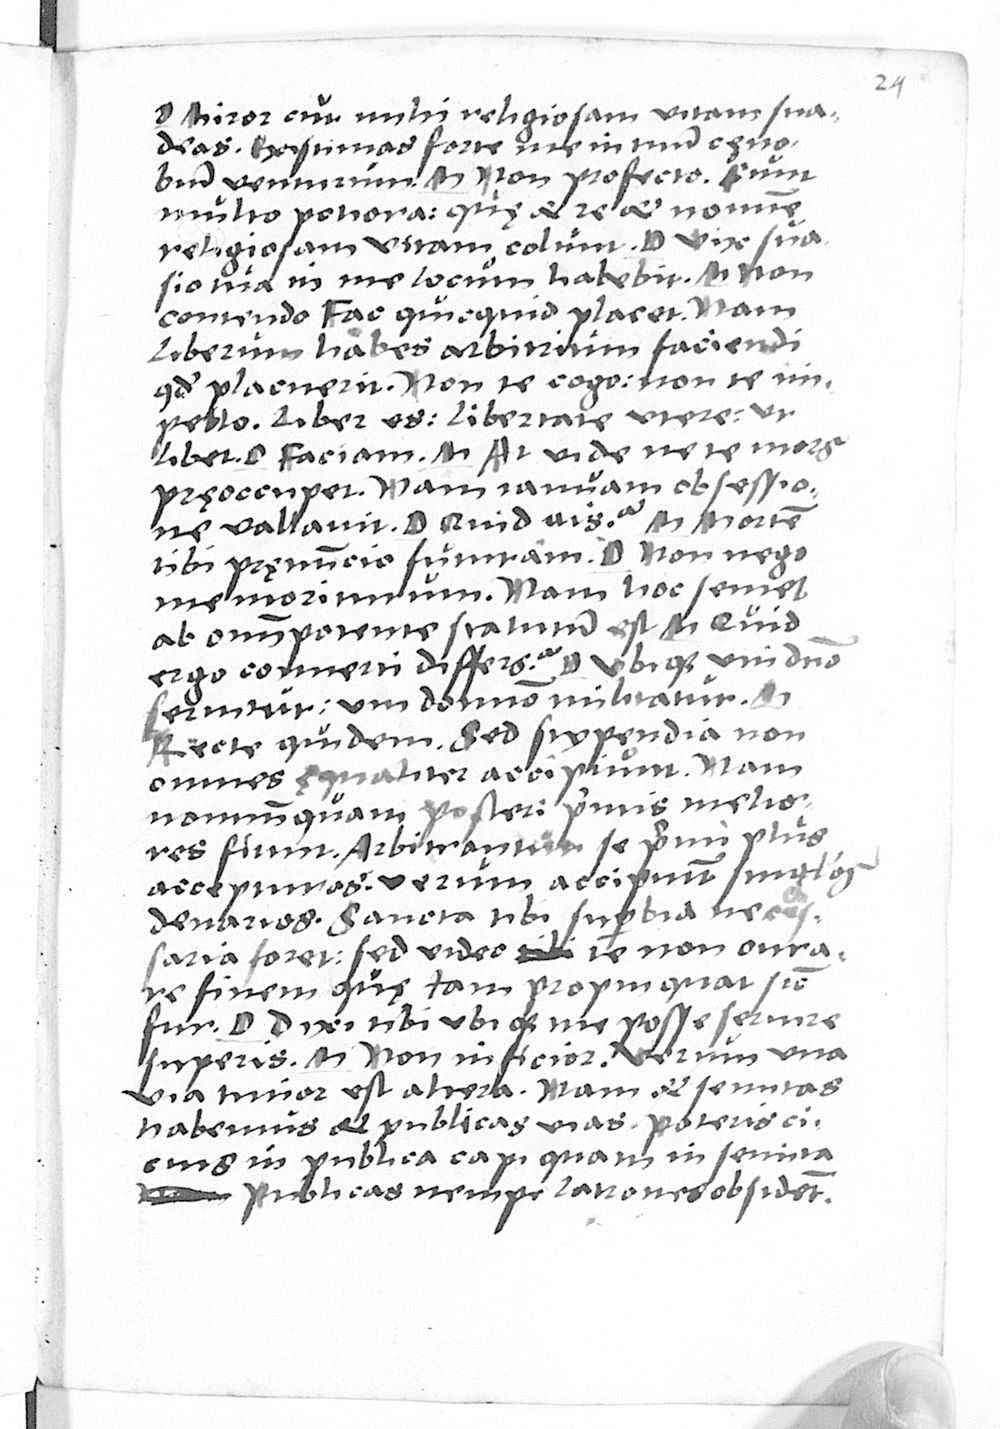 24
D Miror cur mihi religiosam vitam sua-
deas. Existimas forte me in tuū cęno-
biū venturum. M Non profecto. Sunt
multo potiora: quę & re & nomīe
religiosam vitam colunt. D Vix sua
sio tua in me locum habebit. M Non
contendo Fac quicquid placet. Nam
liberum habes arbitrium faciendi
qd̄ placuerit. Non te cogo: non te im-
pello. Liber es: libertate vtere: vt
libet. D Faciam. M At vide ne te mors
pręoccupet. Nam ianuam obsessio-
ne vallauit. D Quid ais? M Mortē
tibi pręnūcio futuram. D Non nego
me moriturum. Nam hoc semel
ab omīpotente statutū est M Quid
ergo conuerti differs? D Vbiqȝ vni dn̄o
seruitur: vni domīo militatur. M
Recte quidem. Sed stypendia non
omnes ęqualiter accipiunt. Nam
nonnūquam posteri p̄mis melio-
res fiunt. Arbitrantur se p̄mi plus
accepturos. verum accipiūt singlós
denarios. Sancta tibi supbia neces-
saria foret: sed video tibi te non cura-
re finem quę tam propinquat sic̄
fur. D Dixi tibi vbiqȝ me posse seruire
superis. M Non inficior. Verum vna
via tutior est altera. Nam & semitas
habemus & publicas vias. poteris ci-
cius in publica capi quam in semita
Publicas nempe latrones obsidēt.